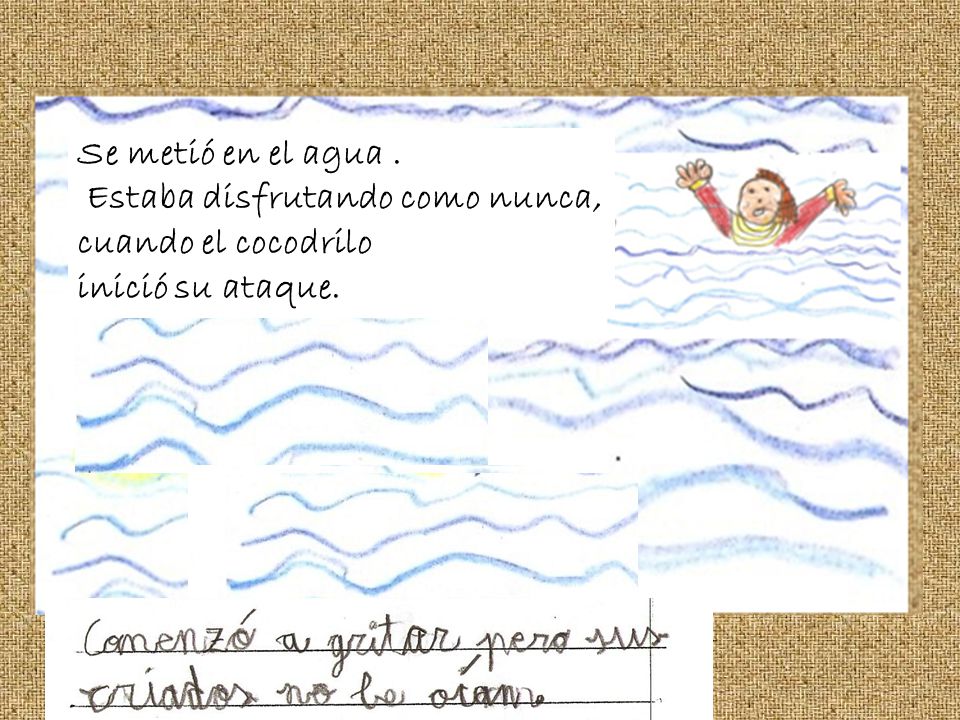 Se metió en el agua .
Estaba disfrutando como nunca,
cuando el cocodrilo
inició su ataque.
Comenzó a gritar pero sus
criados no le oían.